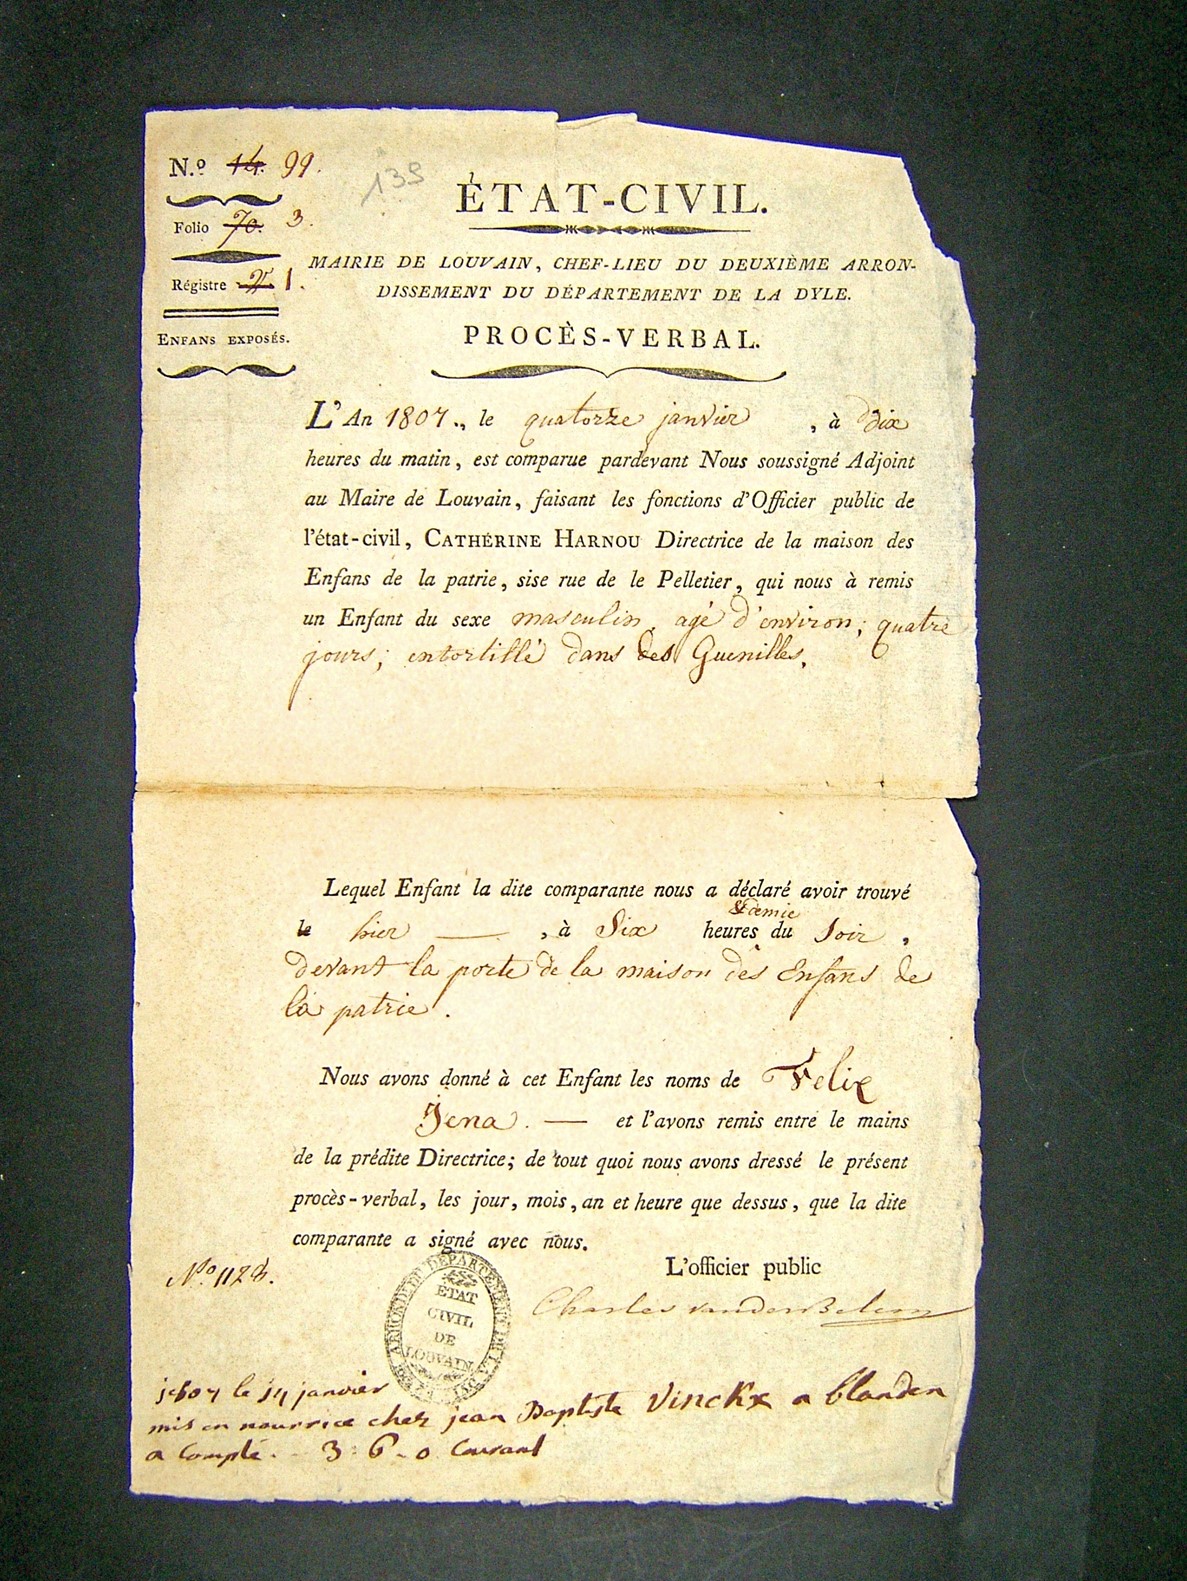 N.º 14. 99.
139
Folio 70. 3.
Régistre 2. 1.
ENFANS EXPOSÉS.
ÉTAT-CIVIL.
MAIRIE DE LOUVAIN, CHEF-LIEU DU DEUXIÈME ARRON-
DISSEMENT DU DÉPARTEMENT DE LA DYLE.
PROCÈS-VERBAL.
L'An 1807., le quatorze janvier , à dix
heures du matin, est comparue pardevant Nous soussigné Adjoint
au Maire de Louvain, faisant les fonctions d'Officier public de
l'état-civil, CATHÉRINE HARNOU Directrice de la maison des
Enfans de la patrie, sise rue de le Pelletier, qui nous à remis
un Enfant du sexe masculin, agé d'environ; quatre
jours; entortillé dans des Guenilles.
Lequel Enfant la dite comparante nous a déclaré avoir trouvé
& demie
le hier — , à Six heures du Soir ,
devant la porte de la maison des Enfans de
la patrie.
Nous avons donné à cet Enfant les noms de Felix
Jena. — et l'avons remis entre le mains
de la prédite Directrice; de tout quoi nous avons dressé le présent
procès-verbal, les jour, mois, an et heure que dessus, que la dite
comparante a signé avec nous.
L'officier public
N.º 1128.
ETAT
CIVIL
DE
LOUVAIN
Charles vanden Belem
1807 le 14 janvier
mis en nourrice chez jean Baptiste Vinckx a blanden
a Compté. - 3-6-0 Courant